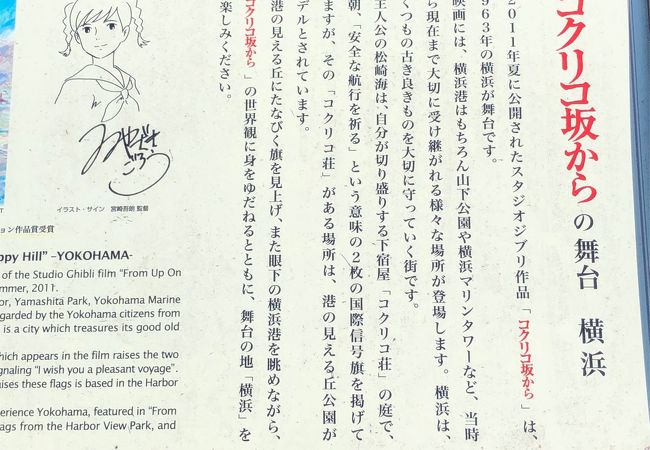 コクリコ坂からの舞台　横浜
2011年夏に公開されたスタジオジブリ作品「コクリコ坂から」は、
963年の横浜が舞台です。
映画には、横浜港はもちろん山下公園や横浜マリンタワーなど、当時
ら現在まで大切に受け継がれる様々な場所が登場します。横浜は、
くつもの古き良きものを大切に守っていく街です。
主人公の松崎海は、自分が切り盛りする下宿屋「コクリコ荘」の庭で、
朝、「安全な航行を祈る」という意味の2枚の国際信号旗を掲げて
ますが、その「コクリコ荘」がある場所は、港の見える丘公園が
デルとされています。
港の見える丘にたなびく旗を見上げ、また眼下の横浜港を眺めながら、
コクリコ坂から」の世界観に身をゆだねるとともに、舞台の地「横浜」を
楽しみください。
みやざき
ごろう
イラスト・サイン　宮崎吾朗 監督
ション作品賞受賞
ppy Hill” –YOKOHAMA-
of the Studio Ghibli film “From Up On
mmer, 2011.
or, Yamashita Park, Yokohama Marine
egarded by the Yokohama citizens from
is a city which treasures its good old
which appears in the film raises the two
gnaling “I wish you a pleasant voyage”.
aises these flags is based in the Harbor
perience Yokohama, featured in “From
lags from the Harbor View Park, and